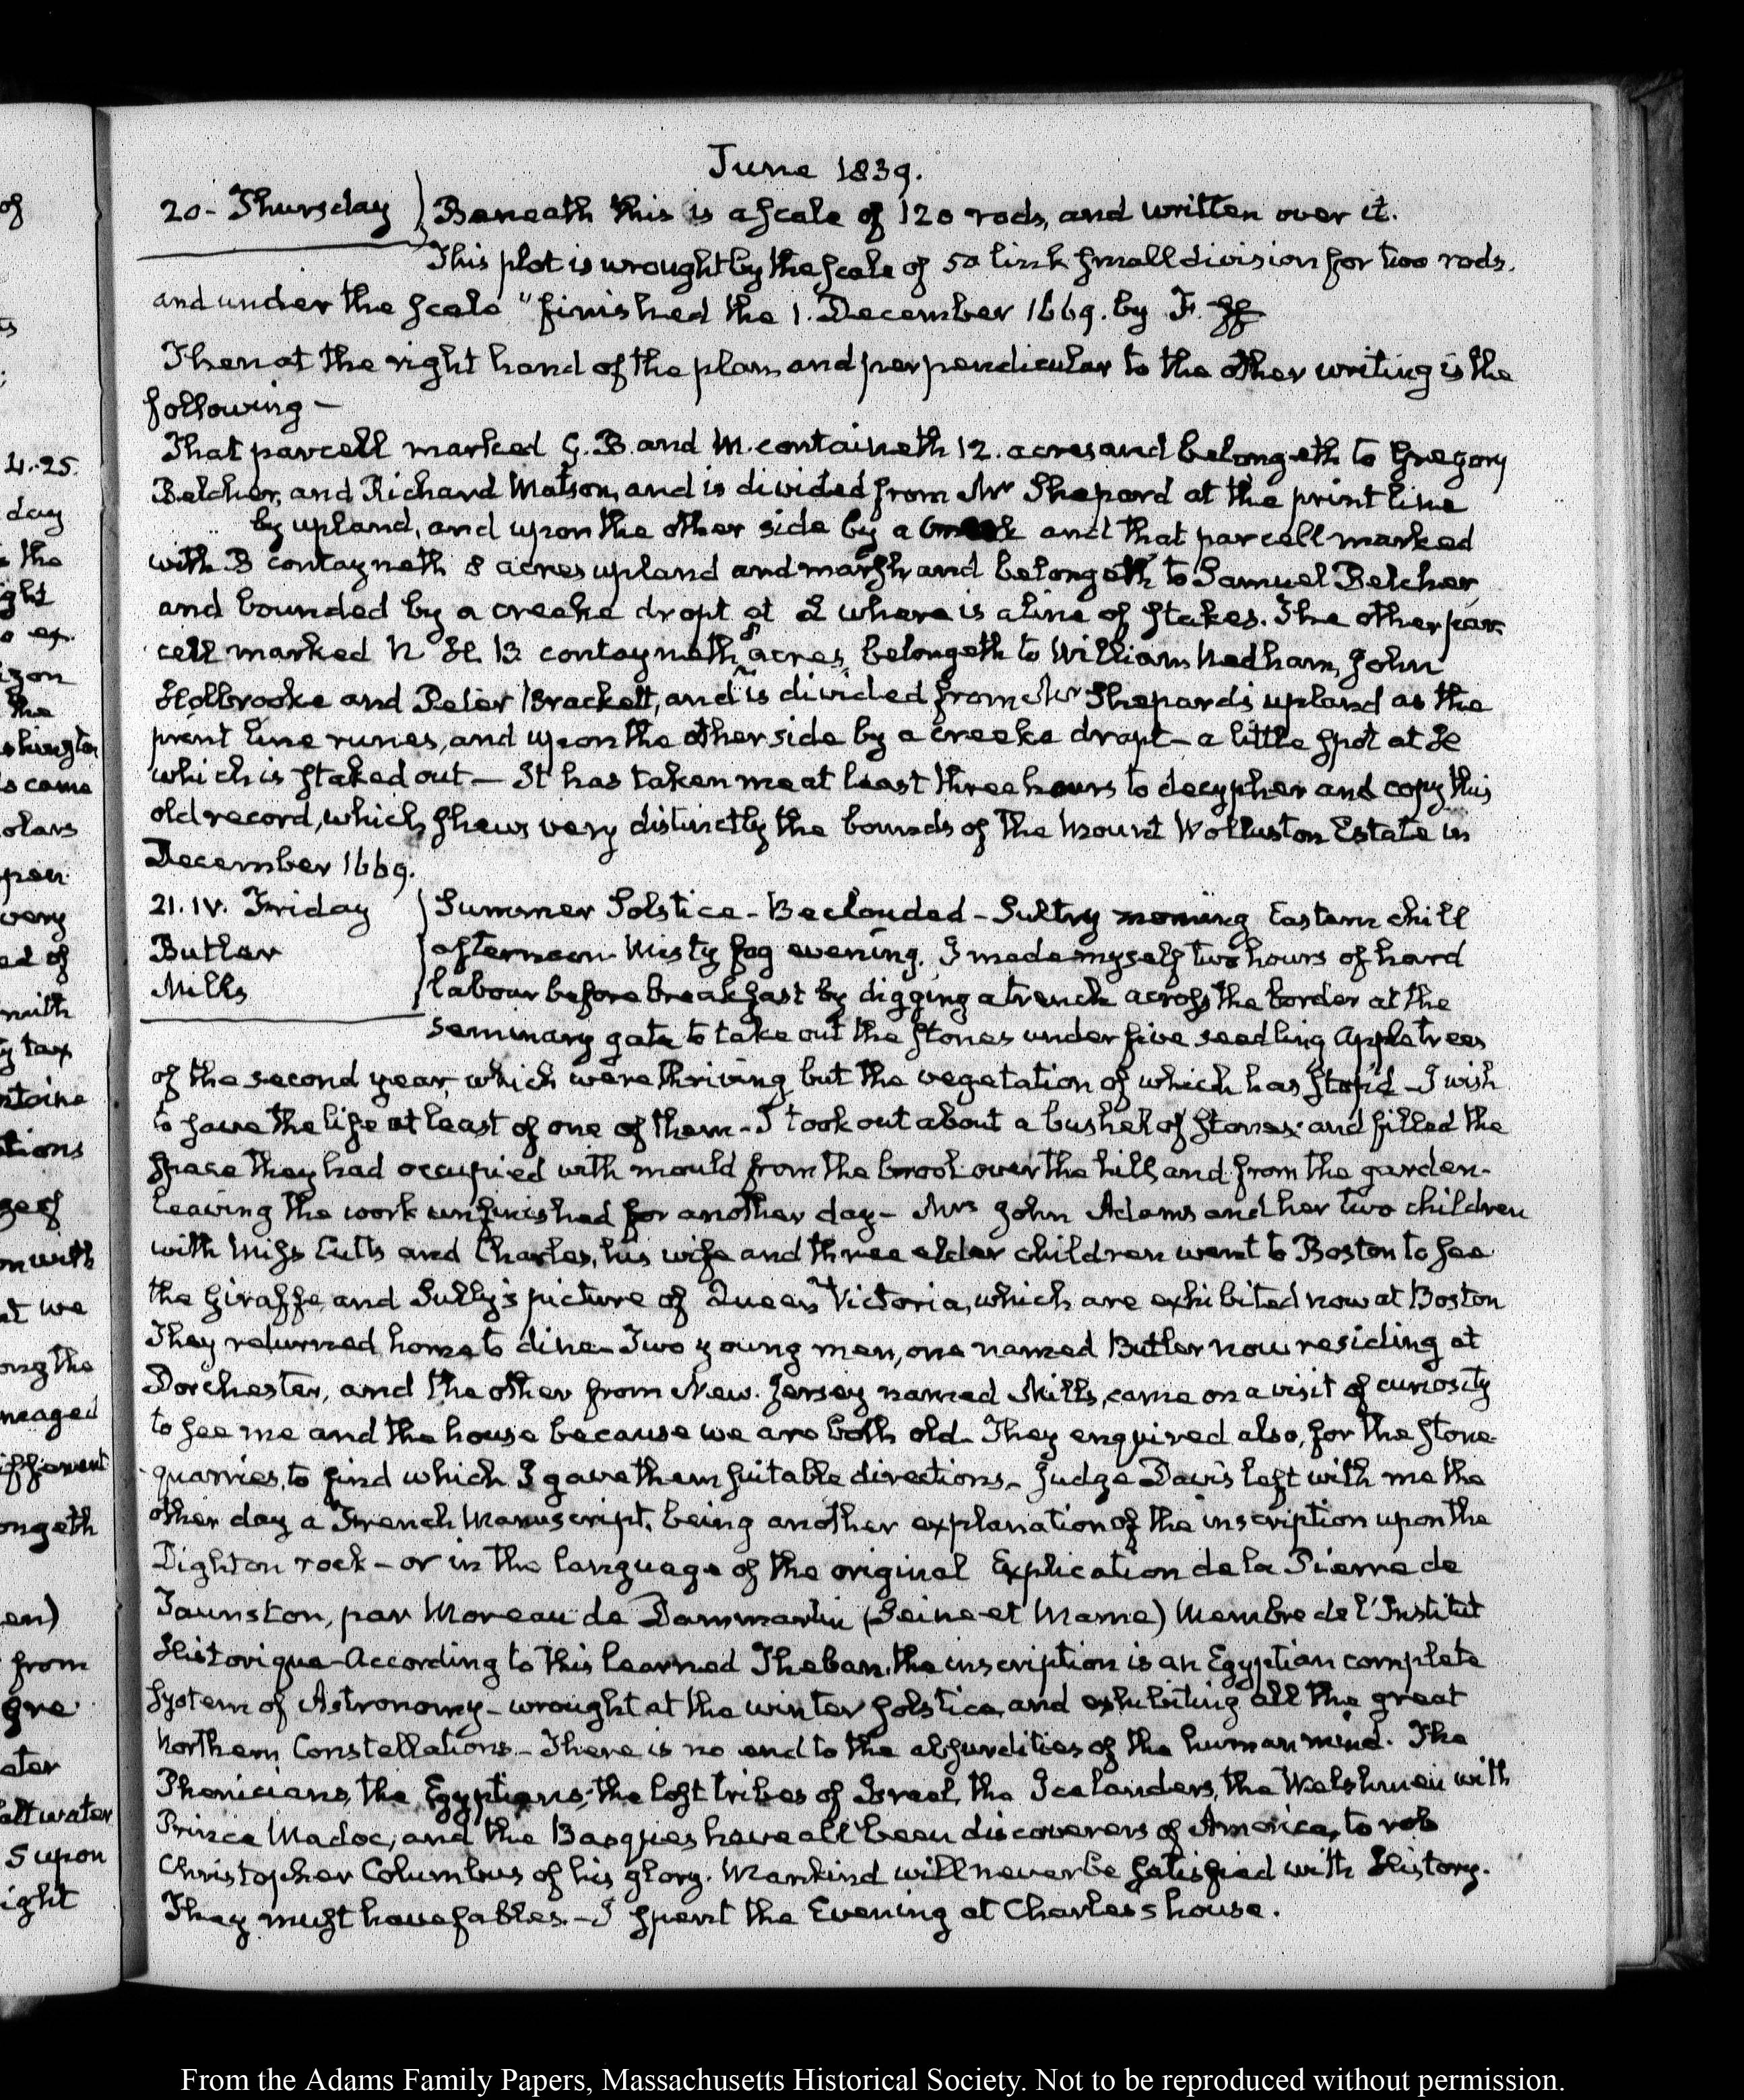 June 1839.
20 - Thursday
Beneath this is a scale of 120 rods, and written over it.
This plot is wrought by the scale of 50 link small division for two rods.
and under the scale "finished the 1. December 1669. by J.
Then at the right hand of the plan and perpendicular to the other writing is the
following —
That parcell marked G. B. and M. containeth 12. acres and belongeth to Gregory
Belcher, and Richard Matson, and is divided from Mr Shepard at the print line
by upland, and upon the other side by a and that parcell marked
with B contayneth 8 acres upland and marsh and belongeth to Samuel Belcher,
and bounded by a creeke dropt at where is a line of stakes. The other par-
cell marked N H. B contayneth 8 acres, belongeth to William Nedham, John
Holbrooke and Peter Brackett, and is divided from Mr Shepards upland as the
print line runes, and upon the other side by a creeke dropt — a little spot at H
which is staked out — It has taken me at least three hours to decypher and copy this
old record, which shews very distinctly the bounds of the Mount Wollaston Estate in
December 1669.
21. IV. Friday
Butler
Mills
Summer Solstice - Beclouded - Sultry morning Eastern chill
afternoon. Misty fog evening. I made myself two hours of hard
labour before breakfast by digging a trench across the border at the
seminary gate to take out the stones under five seedling Appletrees
of the second year which were thriving but the vegetation of which has stop'd - I wish
to save the life at least of one of them - I took out about a bushel of stones and filled the
space they had occupied with mould from the brook over the hill, and from the garden -
leaving the work unfinished for another day - Mrs John Adams and her two children
with Miss Cutts and Charles, his wife and three elder children went to Boston to see
the Giraffe, and Sully's picture of Queen Victoria, which are exhibited now at Boston
They returned home to dine - Two young men, one named Butler now residing at
Dorchester, and the other from New. Jersey named Mills, came on a visit of curiosity
to see me and the house because we are both old - They enquired also, for the stone-
quarries, to find which I gave them suitable directions - Judge Davis left with me the
other day a French Manuscript, being another explanation of the inscription upon the
Dighton rock - or in the language of the original Explication de la Pierre de
Taunston, par Moreau de Dammartin (Seine et Marne) Membre de l'Institut
Historique - According to this learned Theban, the inscription is an Egyptian complete
system of Astronomy - wrought at the winter solstice, and exhibiting all the great
Northern Constellations - There is no end to the absurdities of the human mind. The
Phenicians, the Egyptians, the lost tribes of Israel, the Icelanders, the Welshmen with
Prince Madoc, and the Basques have all been discoverers of America, to rob
Christopher Columbus of his glory. Mankind will never be satisfied with History.
They must have fables. - I spent the Evening at Charles's house.
From the Adams Family Papers, Massachusetts Historical Society. Not to be reproduced without permission.